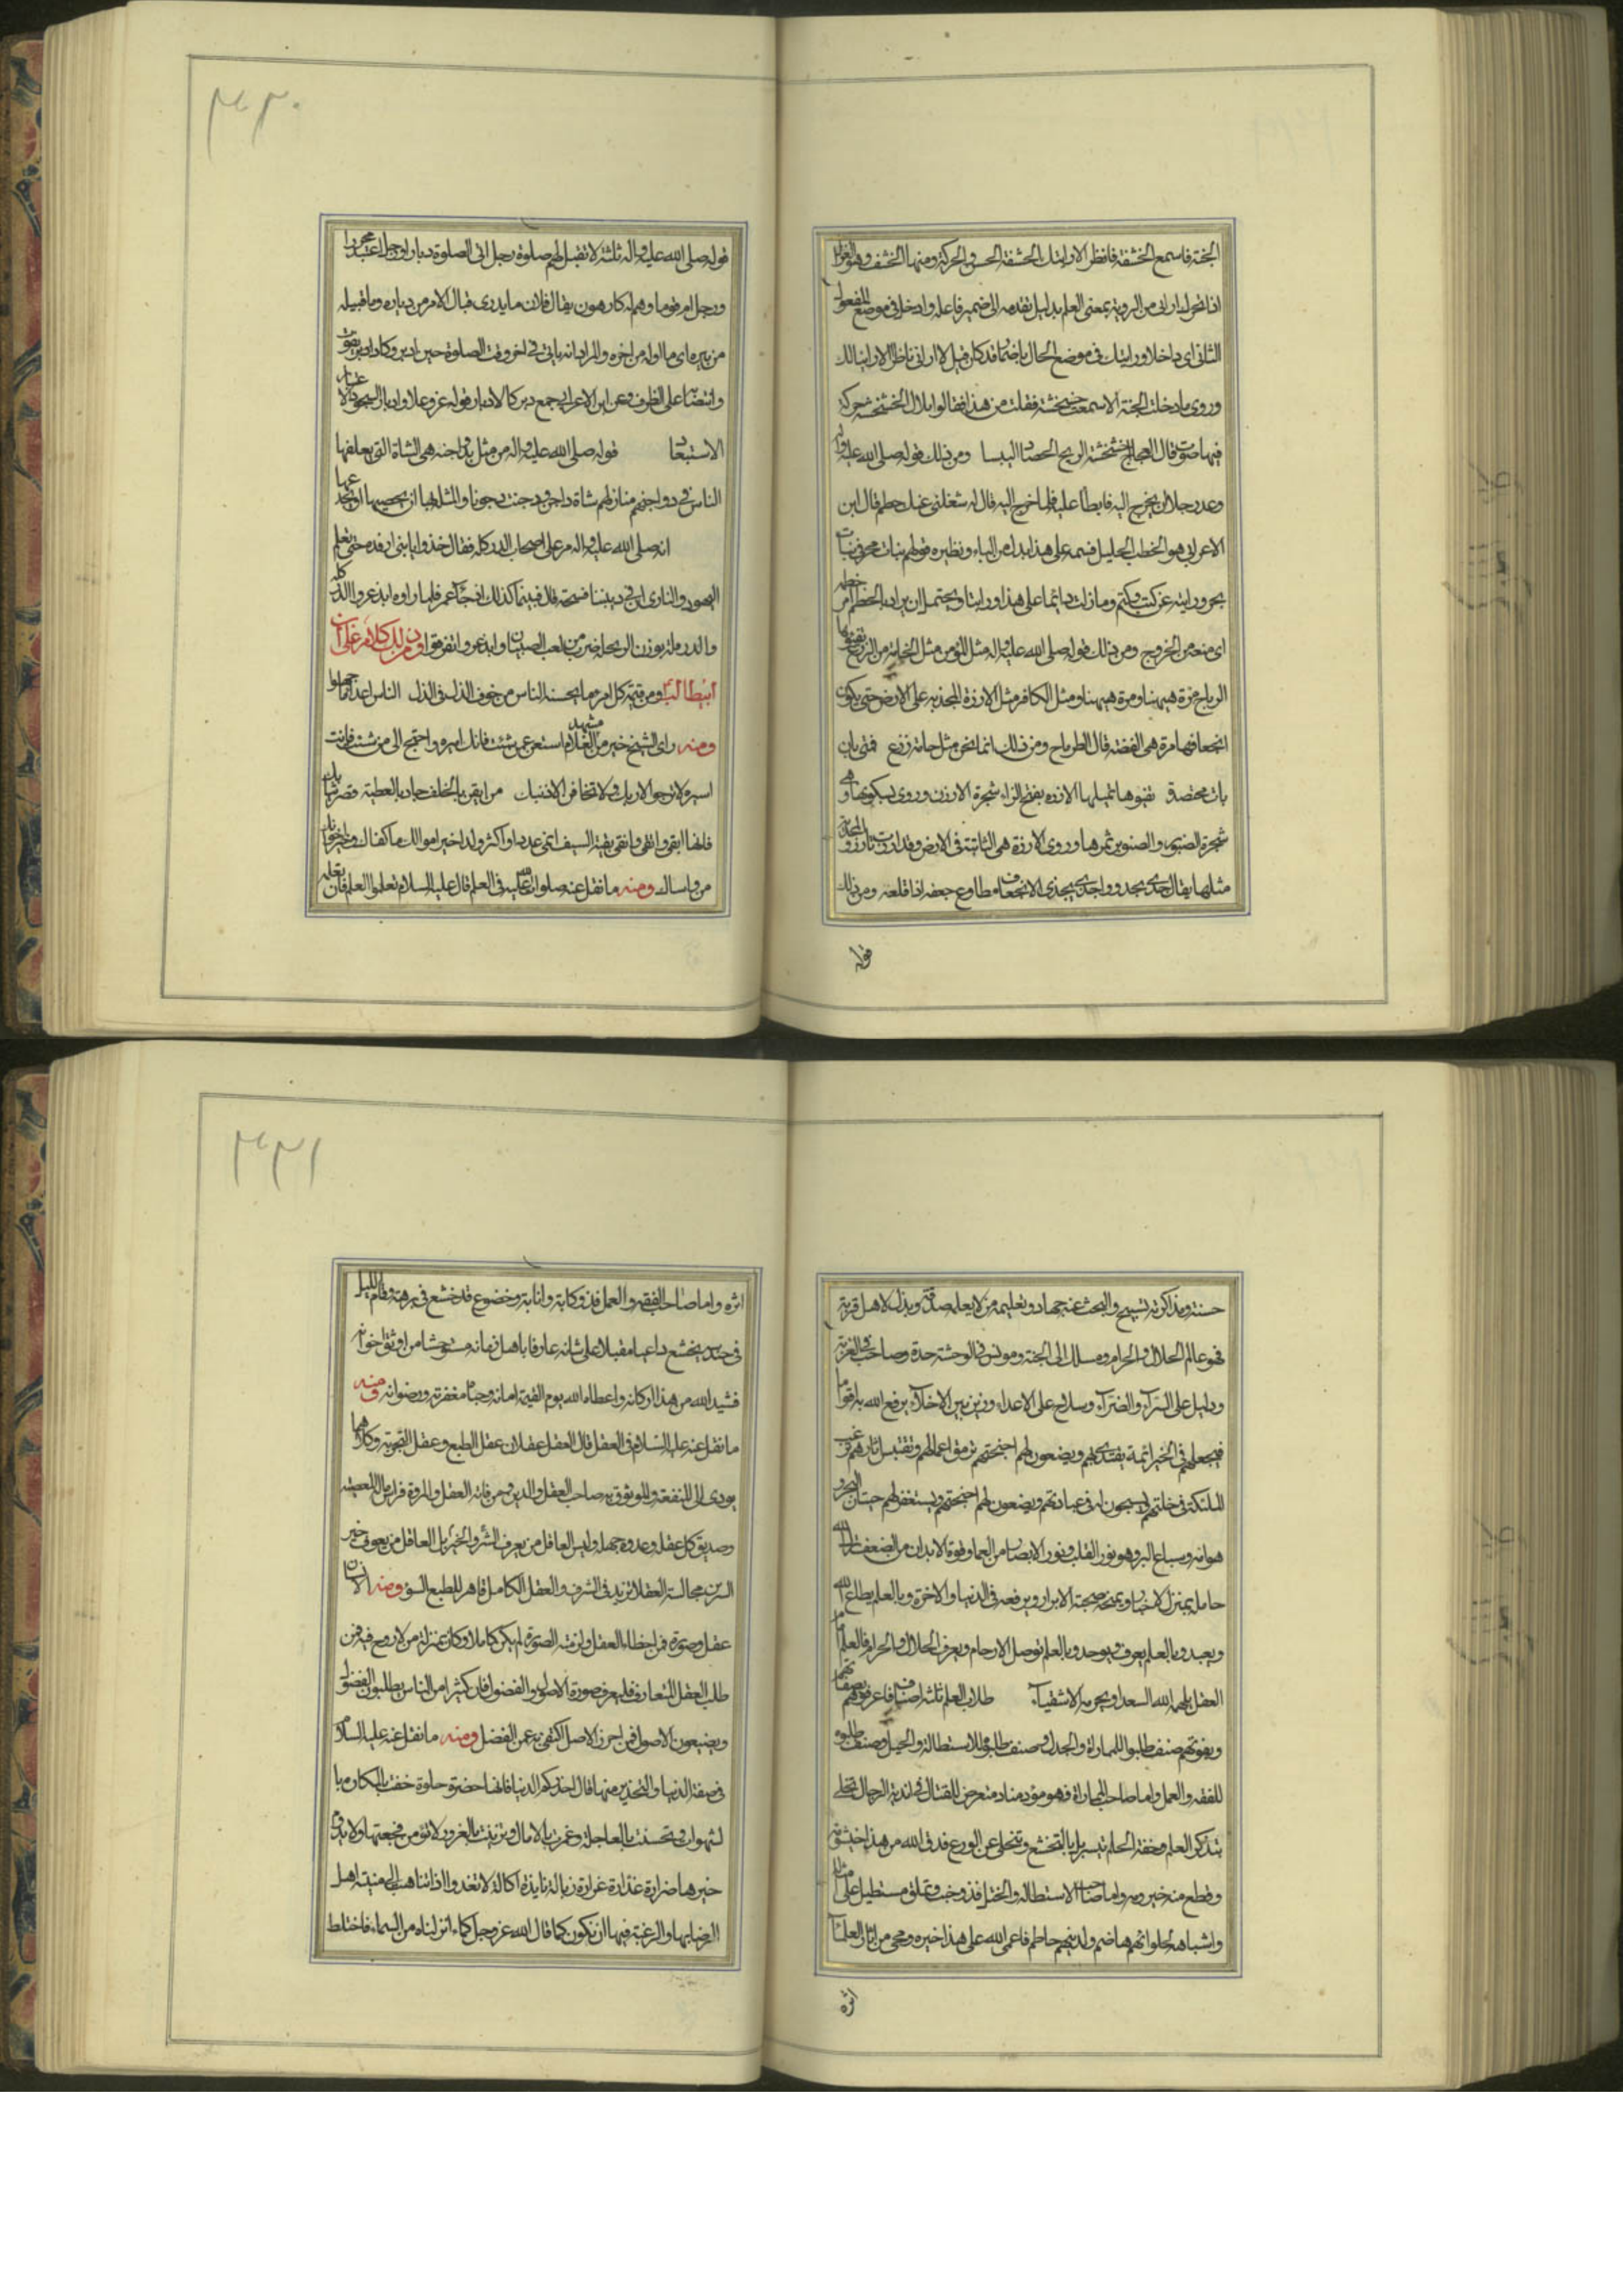 الجنة فاسمع الخشفة فانظر الا رايتك الخشفة الحس والحركة ومنها الخشف وهو الغزال
اذا تحرك اراني من الروية بمعنى العلم بدليل تقدمه الى ضمير فاعله وادخل في موضع المفعول
الثاني اي داخلا ورايتك في موضع الحال باضمار قد كانه قيل لا اراني ناظرا الا رايتك
وروى ما دخلت الجنة الا سمعت خشخشة فقلت من هذا فقالوا بلال الخشخشة حركة
فيها صوت قال العجاج خشخشة الريح الحصاد اليبسا ومن ذلك قوله صلى الله عليه واله
وعد رجلا ان يخرج اليه فابطأ عليه فلما خرج اليه قال له شغلني عنك خطم قال ابن
الاعرابي هو الخطب الجليل فميمه على هذا بدل من الباء ونظيره قولهم بنات مخر في بنات
بحر ورايته عن كثب وكثم وما زلت دائما على هذا وراتبا ويحتمل ان يراد بالخطم امر خطمه
اي منعه من الخروج ومن ذلك قوله صلى الله عليه واله مثل المؤمن مثل الخامة من الزرع تفيئها
الرياح مرة هيهنا ومرة هيهنا ومثل الكافر مثل الارزة المجذية على الارض حتى يكون
انجعافها مرة هي الغضة قال الطرماح ومن ذلك انما نحن مثل خامة زرع فمتى يان
يات محتصدة تفيوها تميلها الارزه بفتح الراء شجرة الارزن وروى بسكونها وهي
شجرة الصنوبر والصنوبر ثمرها وروى الارزة هي الثابتة في الارض وقد ارزت تارز والمجذية
مثلها يقال جذى يجذو واجذى يجذى الانجعاف مطاوع جعفه اذا قلعه ومن ذلك
قوله
٣٣٠
قوله صلى الله عليه واله ثلثة لا تقبل لهم صلوة رجل اتى الصلوة دبارا ورجل اعتبد محررا
ورجل ام قوما وهم له كارهون يقال فلان ما يدرى قبال الامر من دباره وما قبيله
من دبيره اي ما اوله من اخره والمراد انه ياتي في اخر وقت الصلوة حين ادبر وكاد ان يفوت
وانتصابه على الظرف وعن ابن الاعرابي جمع دبر كالادبار قوله عز وعلا وادبار السجود الاعتباد
الاستبعاد قوله صلى الله عليه واله من مثل بدواجنه هي الشاة التي يعلفها
الناس في دواجنهم منازلهم شاة داجن ودجنت دجونا والمثلة بها ان يخصيها او يجدعها
انه صلى الله عليه واله مر على اصحاب الدركله فقال خذوا يا بني ارفده حتى يعلم
اليهود والنصارى ان في ديننا فسحة قال فبينما كذلك اذ جاء عمر فلما راوه ابذعروا الدركله
والدرملة بوزن الربحله ضرب من لعب الصبيان وابذعروا تفرقوا ومن ذلك كلام علي بن
ابيطالب ومن قيمة كل امرء ما يحسنه الناس من خوف الذل في الذل الناس اعداء ما جهلوا
ومنه راى الشيخ خير من مشهد الغلام استغن عمن شئت فانك اميره واحتج الى من شئت فانت
اسيره لا ترجو الا ربك ولا تخافن الا ذنبك من ايقن بالخلف جاد بالعطية
بقية السيف اتمى عددا واكثر ولدا خير اموالك ما كفاك وخير اخوانك
من واساك ومنه ما نقل عنه صلوات الله عليه في العلم قال عليه السلام تعلموا العلم فان تعلمه
حسنة ومذاكرته تسبيح والبحث عنه جهاد وتعليمه من لا يعلمه صدقة وبذله لاهله قربة
فهو عالم الحلال والحرام ومسلك الى الجنة ومونس في الوحشة والوحدة وصاحب في الغربة
ودليل على السراء والضراء وسلاح على الاعداء وزين بين الاخلاء يرفع الله به اقواما
فيجعلهم في الخير ائمة يقتدى بهم ويضعون لهم اجنحتهم ترمق اعمالهم وتقتبس اثارهم ترغب
الملئكة في خلتهم يسبحون له في عبادتهم ويضعون لهم اجنحتهم ويستغفر لهم حيتان البحر و
هوامه وسباع البر وهو نور القلب ونور الابصار من العما وقوة الابدان من الضعف ينزل الله
حامله بمنزل الاخيار ويمنحه صحبة الابرار ويرفعه في الدنيا والاخرة وبالعلم يطاع الله
ويعبد وبالعلم يعرف ويوحد وبالعلم توصل الارحام ويعرف الحلال والحرام فالعلم امام
العقل يلهمه الله السعداء ويحرمه الاشقياء طلاب العلم ثلثة اصناف فاعرفوهم بصفاتهم
ونعوتهم صنف طلبوا للمماراة والجدال وصنف طلبوه للاستطالة والحيل وصنف طلبوه
للفقه والعمل واما صاحب المماراة فهو مؤد منادم متعرض للقتال في اندية الرجال تحلى
بتذكر العلم وصفة الحلم تسربل بالتخشع وتخلى عن الورع فدق الله من هذا خيشومه
وقطع منه خيزومه واما صاحب الاستطالة والختل فذو خب وتملق مستطيل على امثاله
واشباهه لحلوائهم هاضم ولدينهم حاطم فاعمى الله على هذا خبره ومحى من اثار العلماء
اثره
٣٣١
اثره واما صاحب الفقه والعمل فذو كابة وانابة وخضوع قد خشع في برهنه وقام الليل
في حندسه يخشع داعيا مقبلا على شانه عارفا باهل زمانه مستوحشا من اوثق اخوانه
فشيد الله من هذا اركانه واعطاه الله يوم القيمة امانه وحباه مغفرته ورضوانه ومنه
ما نقل عنه عليه السلام في العقل قال العقل عقلان عقل الطبع وعقل التجربة وكلاهما
يودى الى المنفعة والموثوق به صاحب العقل والدين ومن فاته العقل والمروة فراس ماله المعصية
وصديق كل عقله وعدوه جهله وليس العاقل من يعرف الشر والخير بل العاقل من يعرف خير
الشرين مجالسة العقلاء تزيد في الشرف والعقل الكامل قاهر للطبع السوء ومنه الانسان
عقل وصورة فمن اخطاه العقل ولزمته الصورة لم يكن كاملا وكان بمنزلة من لا روح فيه فمن
طلب العقل المتعارف فليعرف صورة الاصول والفضول فان كثيرا من الناس يطلبون الفضول
ويضيعون الاصول فمن احرز الاصل اكتفى به عن الفضل ومنه ما نقل عنه عليه السلام
في صفة الدنيا والتحذير منها قال احذركم الدنيا فانها خضرة حلوة حفت بالمكاره
الشهوات وتحسنت بالعاجلة وغمرت بالامال وتزينت بالغرور لا تؤمن فجعتها ولا يدوم
خيرها ضرارة غدارة غرارة زيالة نايذة اكالة لا تغدوا اذا تناهت الى منية اهل
الرضا بها والرغبة فيها ان تكون كما قال الله عز وجل كماء انزلناه من السماء فاختلط